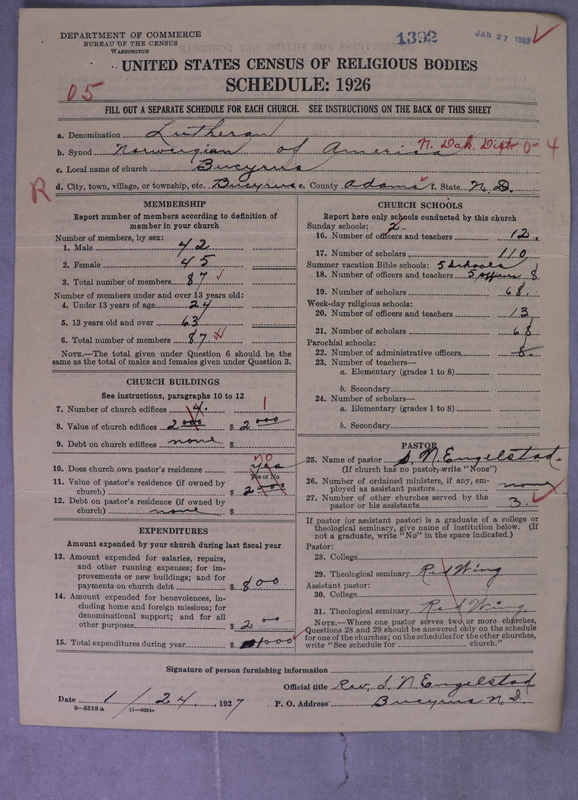 DEPARTMENT OF COMMERCE
BUREAU OF THE CENSUS
WASHINGTON
1392
JAN 27 1927
UNITED STATES CENSUS OF RELIGIOUS BODIES
SCHEDULE: 1926
05
FILL OUT A SEPARATE SCHEDULE FOR EACH CHURCH. SEE INSTRUCTIONS ON THE BACK OF THIS SHEET
a. Denomination Lutheran
b. Synod Norwegian of America N. Dak. Dist 0-4
c. Local name of church Bucyrus
R d. City, town, village, or township, etc. Bucyrus e. County Adams f. State N.D.
MEMBERSHIP
Report number of members according to definition of
member in your church
Number of members, by sex:
1. Male 42
2. Female 45
3. Total number of members 87
Number of members under and over 13 years old:
4. Under 13 years of age 24
5. 13 years old and over 63
6. Total number of members 87
NOTE.—The total given under Question 6 should be the
same as the total of males and females given under Question 3.
CHURCH BUILDINGS
See instructions, paragraphs 10 to 12
7. Number of church edifices 4. 1
8. Value of church edifices 2000 $ 2000
9. Debt on church edifices none $
10. Does church own pastor's residence Yes no
Yes or No
11. Value of pastor's residence (if owned by
church) $ 2000
12. Debt on pastor's residence (if owned by
church) none $
EXPENDITURES
Amount expended by your church during last fiscal year
13. Amount expended for salaries, repairs,
and other running expenses; for im-
provements or new buildings; and for
payments on church debt $ 800
14. Amount expended for benevolences, in-
cluding home and foreign missions; for
denominational support; and for all
other purposes $ 200
15. Total expenditures during year $ 1000
CHURCH SCHOOLS
Report here only schools conducted by this church
Sunday schools: 2
16. Number of officers and teachers 12.
17. Number of scholars 110
Summer vacation Bible schools: 5 schools
18. Number of officers and teachers 8
19. Number of scholars 68.
Week-day religious schools:
20. Number of officers and teachers 13
21. Number of scholars 68
Parochial schools:
22. Number of administrative officers
23. Number of teachers—
a. Elementary (grades 1 to 8)
b. Secondary
24. Number of scholars—
a. Elementary (grades 1 to 8)
b. Secondary
PASTOR
25. Name of pastor S. N. Engelstad.
(If church has no pastor, write "None")
26. Number of ordained ministers, if any, em-
ployed as assistant pastors none
27. Number of other churches served by the
pastor or his assistants 3.
If pastor (or assistant pastor) is a graduate of a college or
theological seminary, give name of institution below. (If
not a graduate, write "No" in the space indicated.)
Pastor:
28. College
29. Theological seminary Red Wing
Assistant pastor:
30. College
31. Theological seminary Red Wing
NOTE.—Where one pastor serves two or more churches,
Questions 28 and 29 should be answered only on the schedule
for one of the churches; on the schedules for the other churches,
write "See schedule for church."
Signature of person furnishing information
Official title Rev. S. N. Engelstad
Date 1/24, 1927 P. O. Address Bucyrus N.D.
8—5518 a